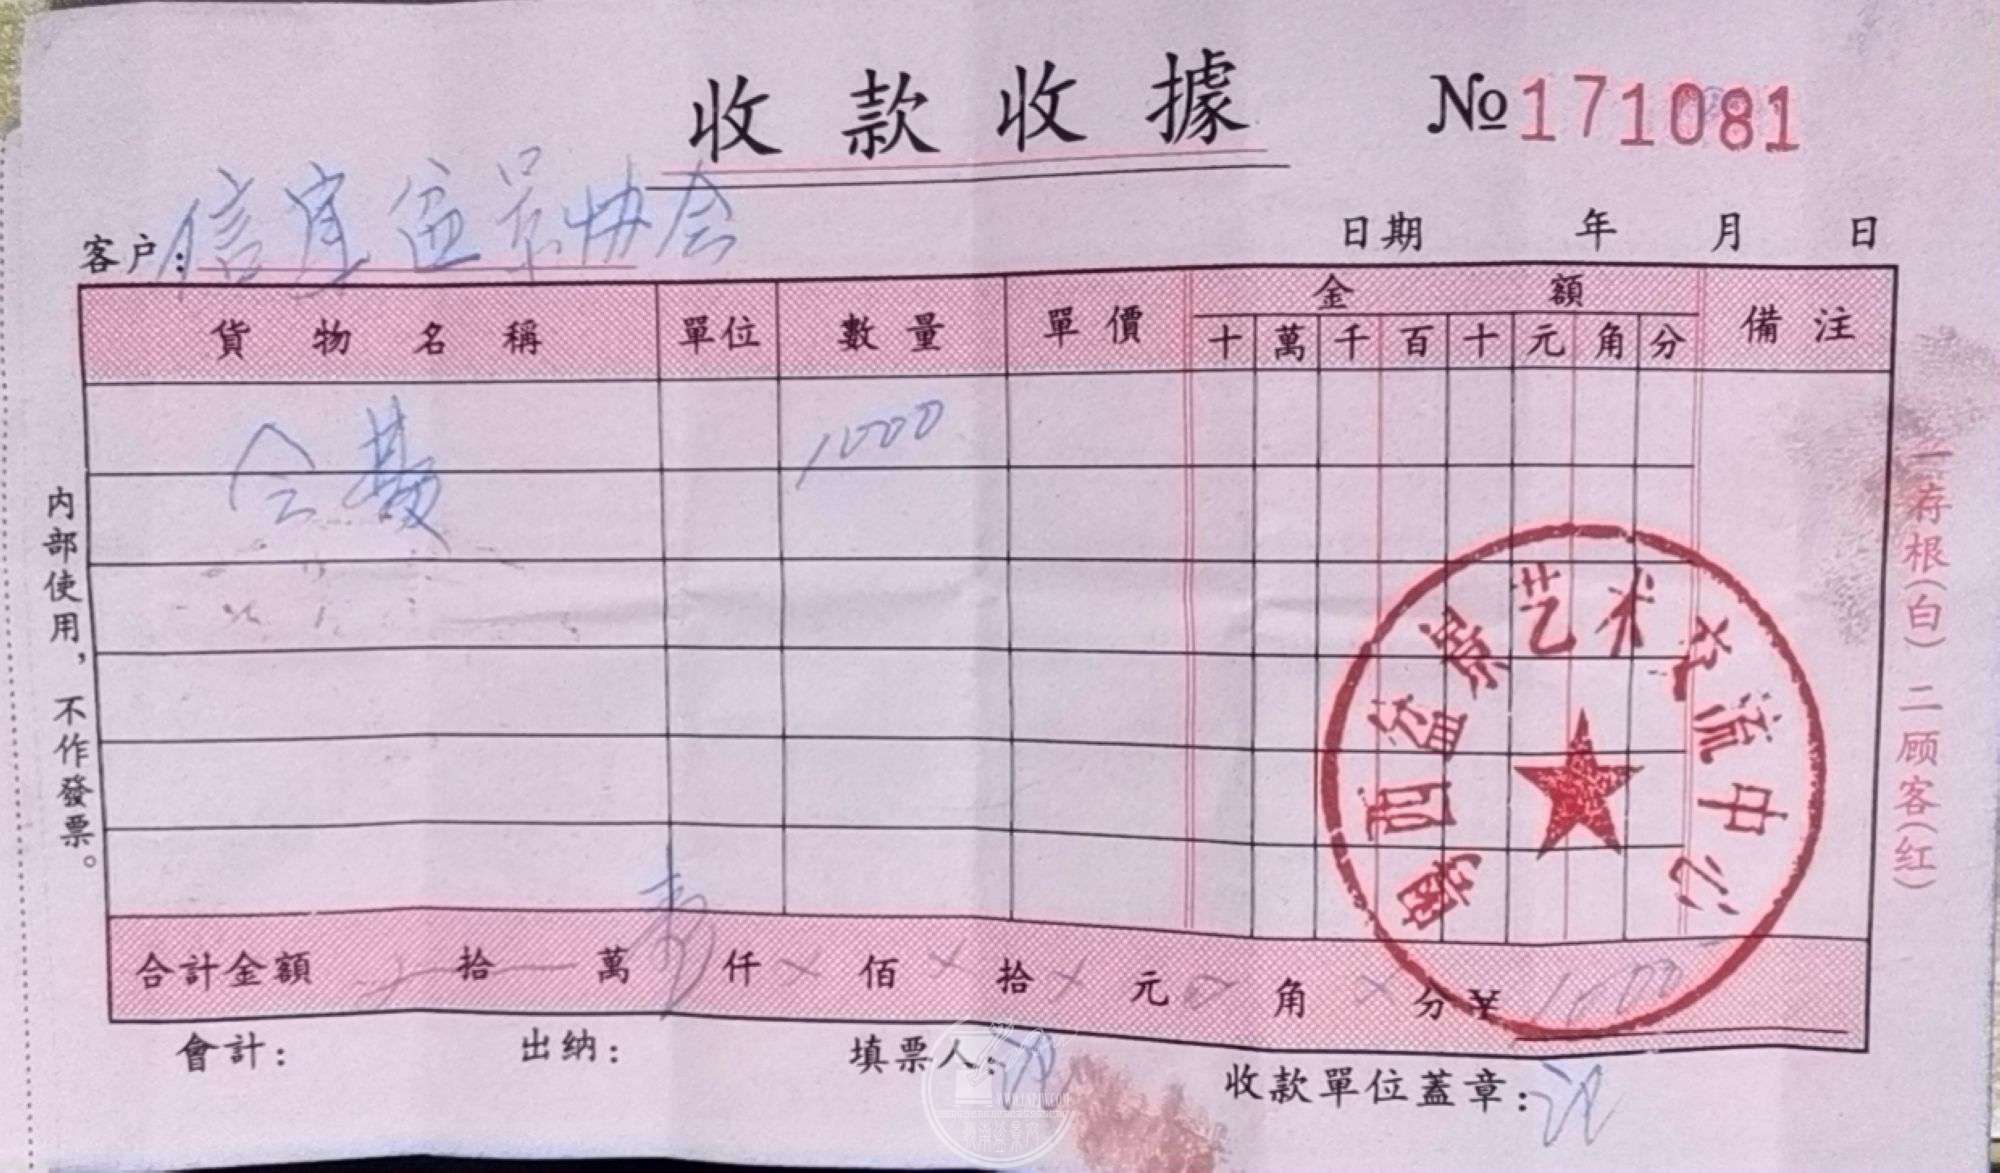 收款收據
№171081
客户：信宜盆景协会
日期 年 月 日
貨物名稱 單位 數量 單價 金額 備注
十 萬 千 百 十 元 角 分
会费 1000
合計金額 拾 萬 壹 仟 × 佰 × 拾 × 元 × 角 × 分 ¥ 1000
會計： 出纳： 填票人： 收款單位蓋章：
内部使用，不作發票。
一存根(白) 二顾客(红)
盆景艺术交流中心